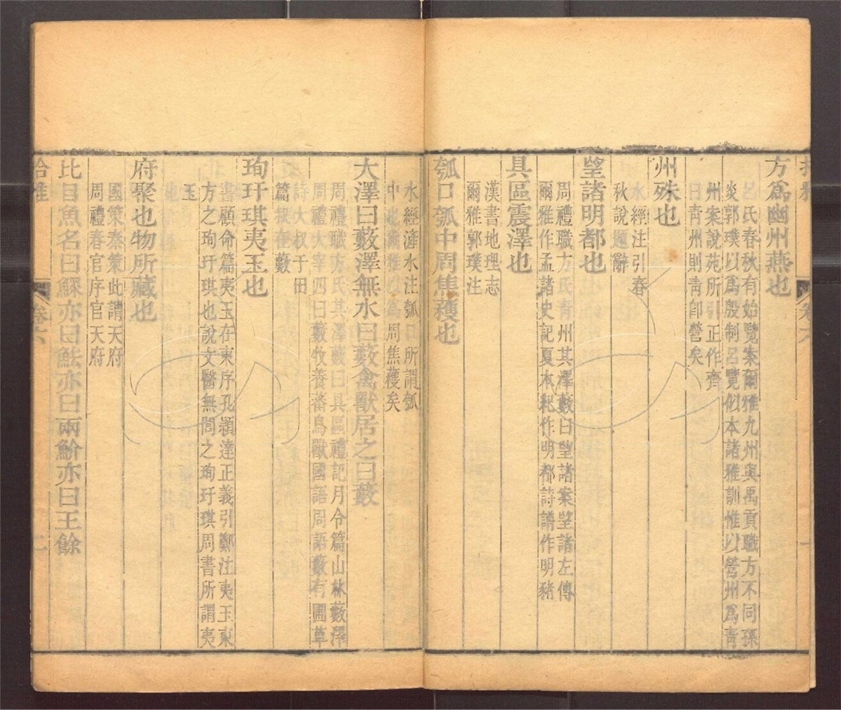 方爲幽州燕也
呂氏春秋有始覽案爾雅九州與禹貢職方不同孫
炎郭璞以爲殷制呂覽似本諸雅訓惟以營州爲靑
州案說苑所引正作齊
曰靑州則靑卽營矣
州殊也
水經注引春
秋說題辭
望諸明都也
周禮職方氏靑州其澤藪曰望諸案望諸左傳
爾雅作孟諸史記夏本紀作明都詩譜作明豬
具區震澤也
漢書地理志
爾雅郭璞注
瓠口瓠中周焦穫也
水經濟水注瓠口所謂瓠
中也爾雅以爲周焦穫矣
大澤曰藪澤無水曰藪禽獸居之曰藪
周禮職方氏其澤藪曰具區禮記月令篇山林藪澤
周禮大宰四曰藪牧養蕃鳥獸國語周語藪有圃草
詩大叔于田
篇叔在藪
珣玗琪夷玉也
書顧命篇夷玉在東序孔穎達正義引鄭注夷玉東
方之珣玗琪也說文醫無閭之珣玗琪周書所謂夷
玉
府聚也物所藏也
國策秦策此謂天府
周禮春官序官天府
比目魚名曰鰈亦曰魼亦曰兩魪亦曰王餘
拾雅
卷六
二